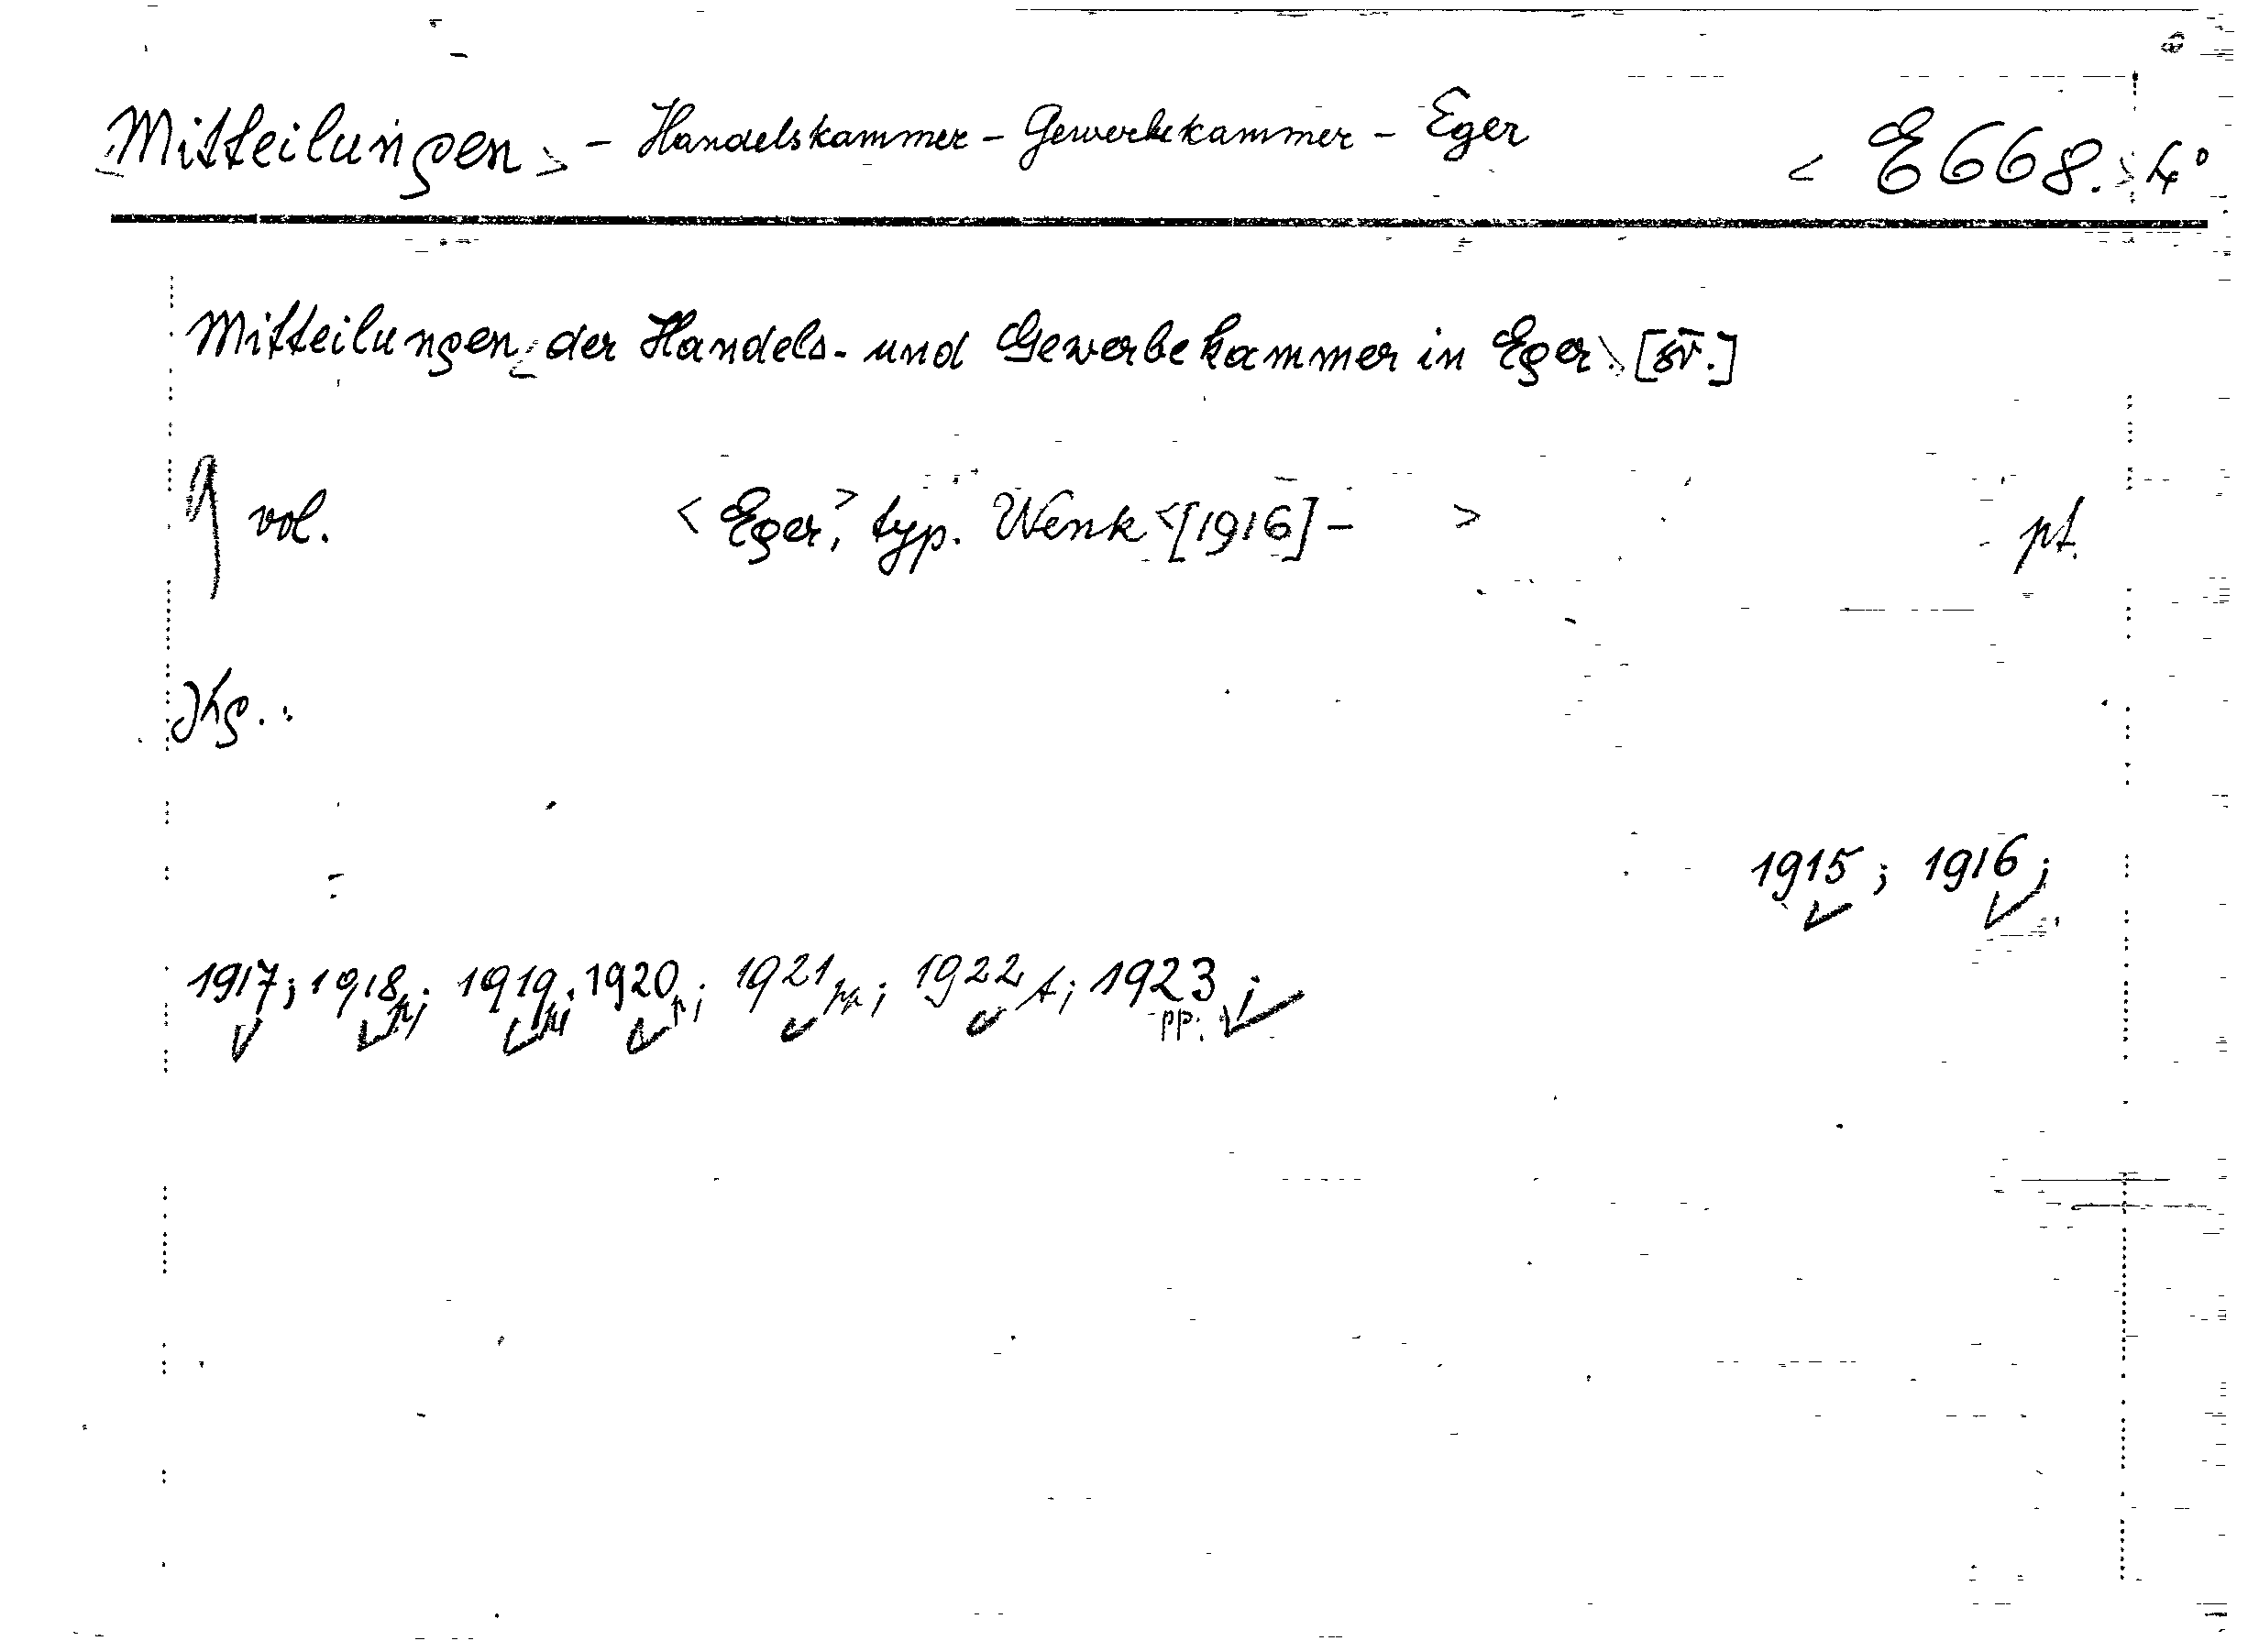 <Mitteilungen> - Handelskammer - Gewerbekammer - Eger < E 668. > 4°
Mitteilungen < der Handels- und Gewerbekammer in Eger > [sv.]
9 vol. < Eger, > typ. Wenk < [1916] - > pt.
Jhg. :
1915 ; 1916 ;
1917 ; 1918 ; 1919 ; 1920 ; 1921 ; 1922 ; 1923 pp. ;